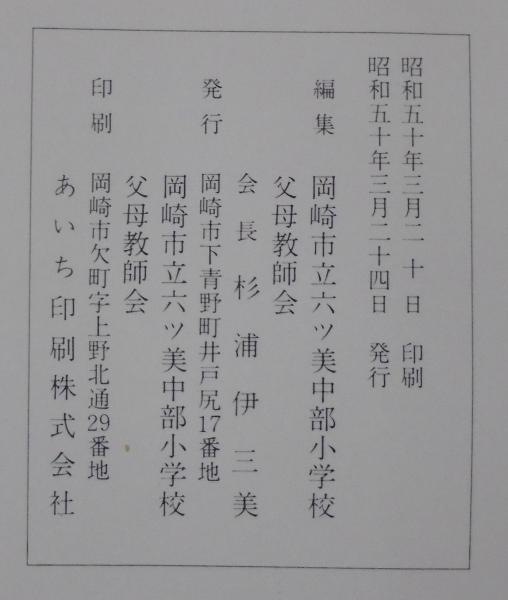 昭和五十年三月二十日 印刷
昭和五十年三月二十四日 発行
編集 岡崎市立六ツ美中部小学校
父母教師会
会長 杉浦伊三美
発行 岡崎市下青野町井戸尻17番地
岡崎市立六ツ美中部小学校
父母教師会
印刷 岡崎市欠町字上野北通29番地
あいち印刷株式会社